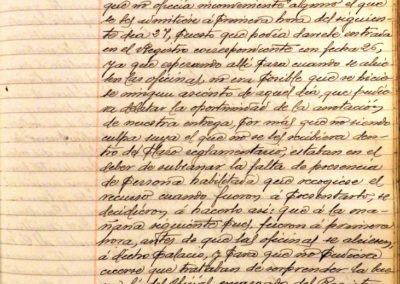 que no ofrecia inconveniente alguno el que
se les admitiera á primera hora del siguien-
te dia 27, puesto que podia darsele entrada
en el Registro correspondiente con fecha 26,
ya que esperando allí para cuando se abrie-
sen las oficinas no era posible que se hicie-
se ningun asiento de aquel dia que pudie-
ra afectar la oportunidad de la anotación
de nuestra entrega, por más que no siendo
culpa suya el que no se les recibiera den-
tro del plazo reglamentario, estaban en el
deber de subsanar la falta de presencia
de persona habilitada que recogiese el
recurso cuando fueron á presentarlo; se
decidieron á hacerlo asi: que á la ma-
ñana siguiente pues, fueron á primera
hora, antes de que las oficinas se abriesen,
á dicho Palacio, y para que no pudiera
creerse que trataban de sorprender la bue-